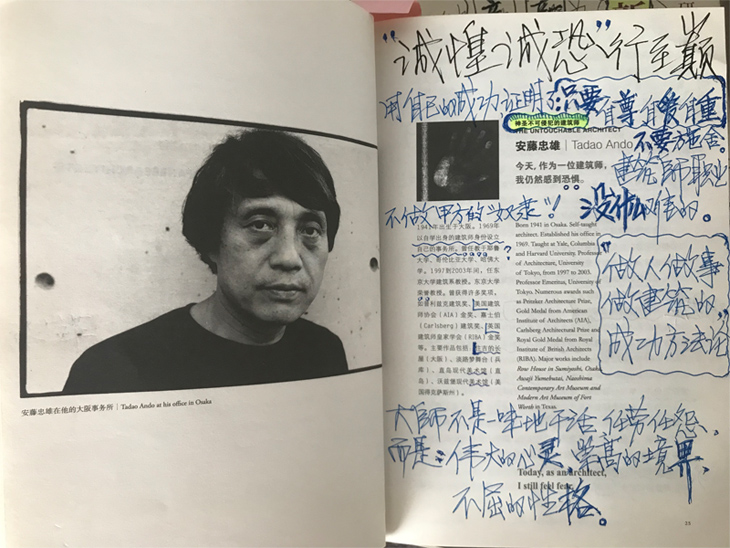 安藤忠雄在他的大阪事务所｜Tadao Ando at his office in Osaka
“诚惶诚恐”行至巅
用自己的成功证明了:只要有尊有爱有重
神圣不可侵犯的建筑师
THE UNTOUCHABLE ARCHITECT
不要方苞舍。
安藤忠雄｜Tadao Ando
建筑师职业
今天，作为一位建筑师，
我仍然感到恐惧。
没什么伟的。
不做“甲方的”奴隶”!
1941年出生于大阪。1969年
以自学出身的建筑师身份设立
自己的事务所。曾任教于耶鲁
大学、哥伦比亚大学、哈佛大
学。1997到2003年间，任东
京大学建筑系教授。东京大学
荣誉教授。曾获得许多奖项，
如普利兹克建筑奖、美国建筑
师协会（AIA）金奖、嘉士伯
（Carlsberg）建筑奖、英国
建筑师皇家学会（RIBA）金奖
等。主要作品包括：住吉的长
屋（大阪）、淡路梦舞台（兵
库）、直岛现代美术馆（直
岛）、沃兹堡现代美术馆（美
国得克萨斯州）。
Born 1941 in Osaka. Self-taught
architect. Established his office in
1969. Taught at Yale, Columbia
and Harvard University. Professor
of Architecture, University
of Tokyo, from 1997 to 2003.
Professor Emeritus, University of
Tokyo. Numerous awards such
as Pritzker Architecture Prize,
Gold Medal from American
Institute of Architects (AIA),
Carlsberg Architectural Prize and
Royal Gold Medal from Royal
Institute of British Architects
(RIBA). Major works include
Row House in Sumiyoshi, Osaka
Awaji Yumebutai, Naoshima
Contemporary Art Museum and
Modern Art Museum of Fort
Worth in Texas.
“做人做事
做建筑的”
成功方法论
大师不是一味地干活 任劳任怨,
而是:伟大的心灵,崇高的境界,
不屈的性格。
Today, as an architect,
I still feel fear.